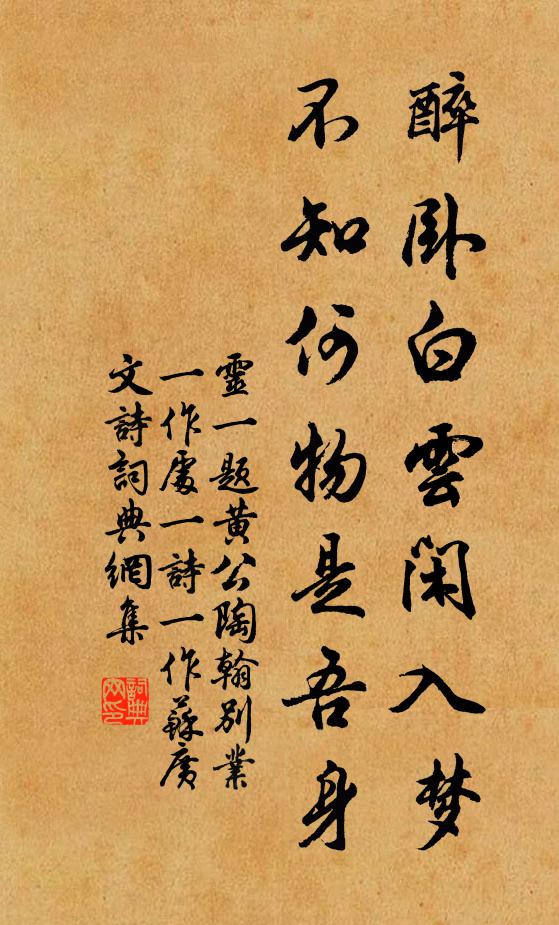 醉卧白雲閑入梦
不知何物是吾身
靈一題黄公陶翰别業
一作處一詩一作蘇廣
文詩詞典網集
詞典
网印